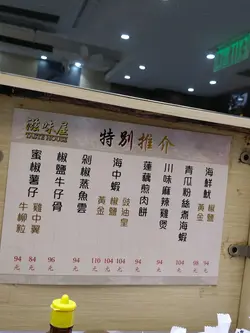 滋味屋
TASTE HOUSE
特別推介
海鮮魷 椒鹽 黃金
青瓜粉絲煮海蝦
川味麻辣雞煲
蓮藕煎肉餅
海中蝦 椒鹽 豉油皇 黃金
剁椒蒸魚雲
椒鹽牛仔骨
蜜椒薯仔 雞中翼 牛柳粒
94元 84元 96元 94元 110元 104元 104元 94元 94元 104元